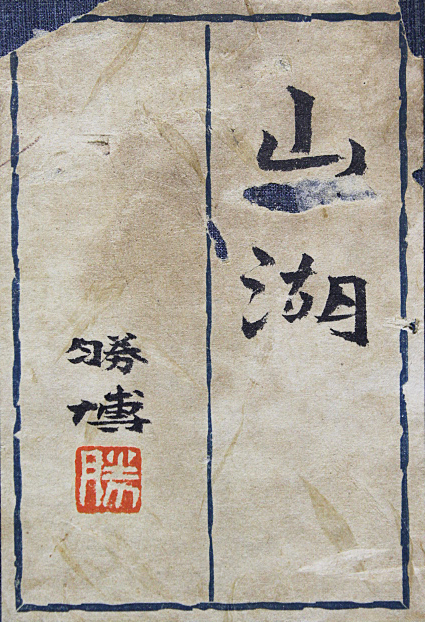 山湖
勝博
勝